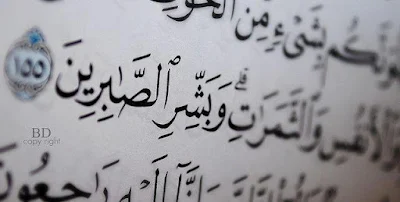 بِشَىْءٍ مِّنَ ٱلْخَوْفِ
وَٱلْأَنفُسِ وَٱلثَّمَرَٰتِ ۗ وَبَشِّرِ ٱلصَّٰبِرِينَ ١٥٥
وَإِنَّآ إِلَيْهِ رَٰجِعُونَ
BD
copy right